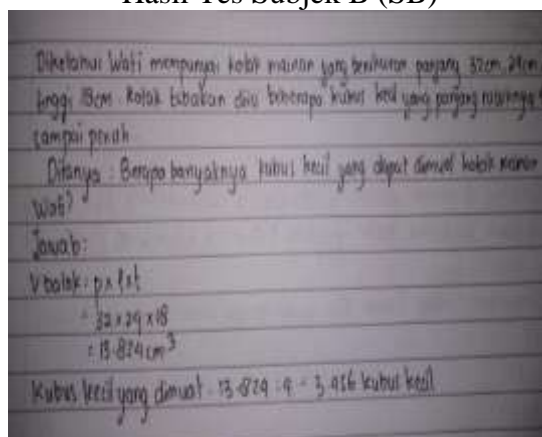 Hasil Tes Subjek B (SB)
Diketahui Wati mempunyai kotak mainan yang berukuran panjang 32cm, 24cm
tinggi 18cm. Kotak beberapa kubus kecil yang panjang rusuknya
sampai penuh
Ditanya : Berapa banyaknya kubus kecil yang dapat dimuat kotak mainan
Wati?
Jawab:
V balok = p x l x t
= 32 x 24 x 18
= 13.824 cm³
Kubus kecil yang dimuat = 13.824 : 4 = 3.456 kubus kecil